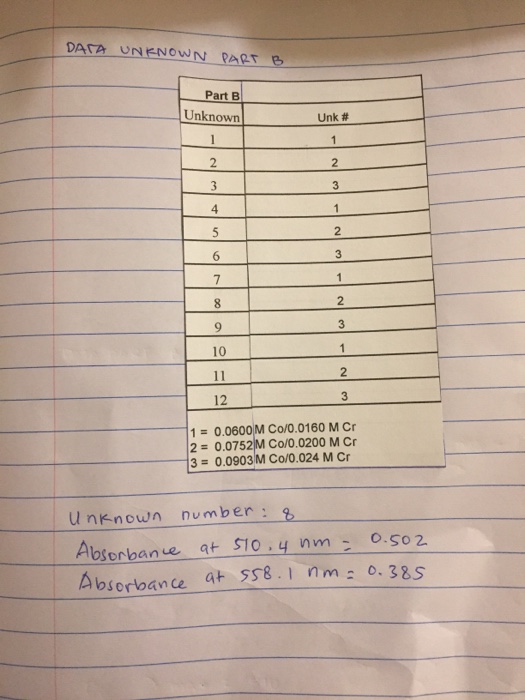 DATA UNKNOWN PART B
Part B
Unknown Unk #
1 1
2 2
3 3
4 1
5 2
6 3
7 1
8 2
9 3
10 1
11 2
12 3
1 = 0.0600 M Co/0.0160 M Cr
2 = 0.0752 M Co/0.0200 M Cr
3 = 0.0903 M Co/0.024 M Cr
Unknown number: 8
Absorbance at 510.4 nm = 0.502
Absorbance at 558.1 nm = 0.385